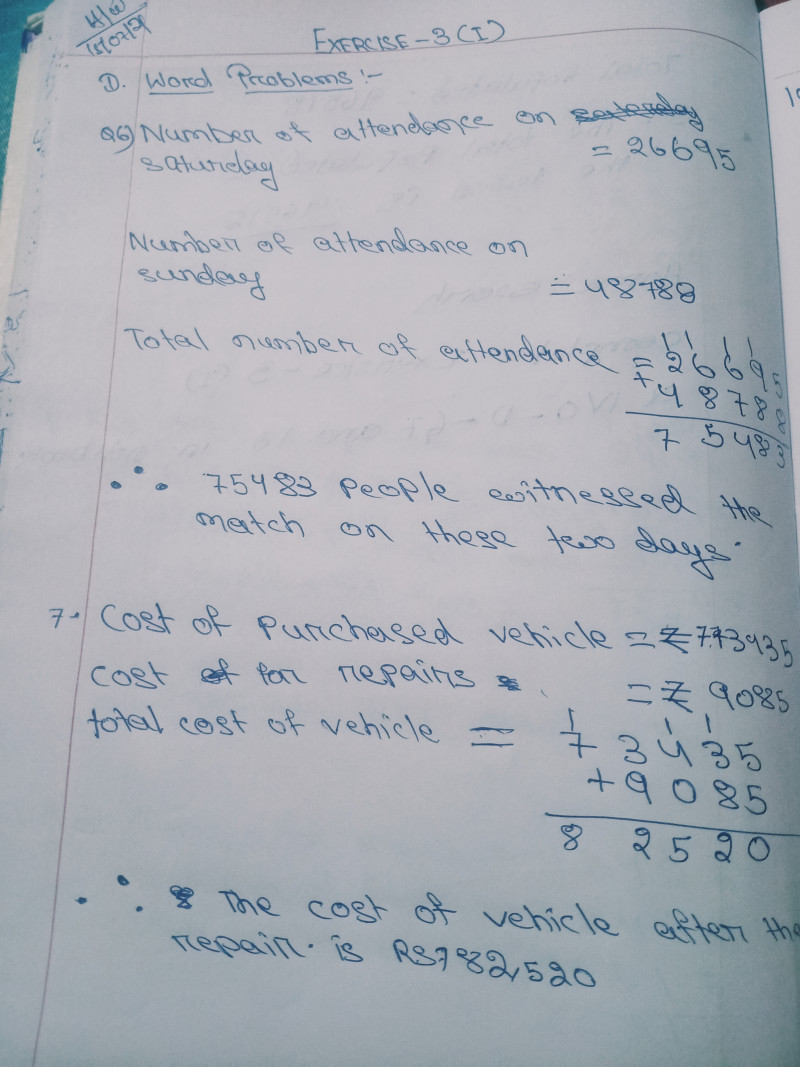 H/W
15/07/21
EXERCISE-3(I)
D. Word Problems:-
Q6) Number of attendance on saterday
saturday = 26695
Number of attendance on
sunday = 48788
Total number of attendance = 26695
+ 48788
75483
∴ 75483 people witnessed the
match on these two days.
7. Cost of purchased vehicle = ₹ 773435
cost of for repairs = ₹ 9085
total cost of vehicle = 73435
+ 9085
82520
∴ The cost of vehicle after the
repair. is RS782,520